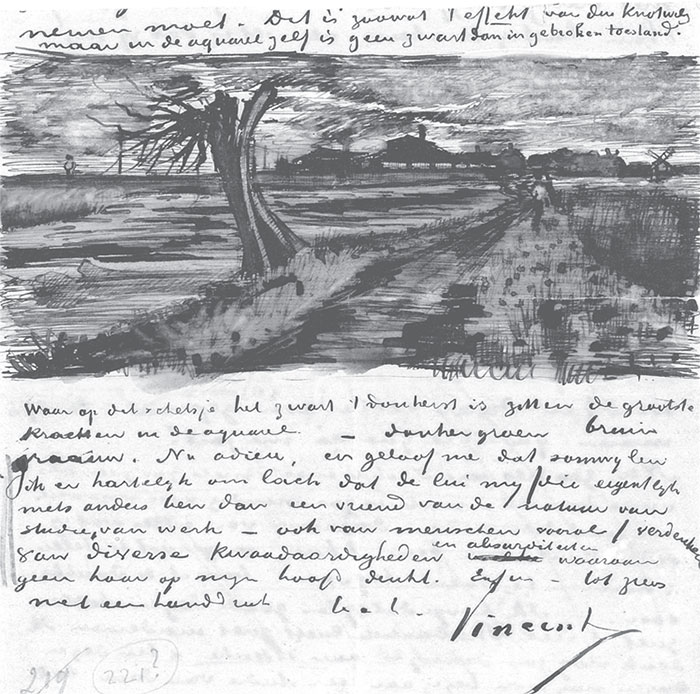 nemen moet. Dit is zoowat 't effekt van den Knotwilg
maar in de aquarel zelf is geen zwart dan in gebroken toestand.
Waar op dit schetsje het zwart 't donkerst is zitten de grootste
krachten in de aquarel — donkergroen bruin
graauw. Nu adieu, en geloof me dat somwylen
ik er hartelyk om lach dat de lui my /die eigentlyk
niets anders ben dan een vriend van de natuur van
studie, van werk — ook van menschen vooral / verdenken
van diverse kwaadaardigheden en absurditeiten waaraan
geen haar op myn hoofd denkt. Enfin — tot ziens
met een handdruk t. à t.
Vincent
219 221?